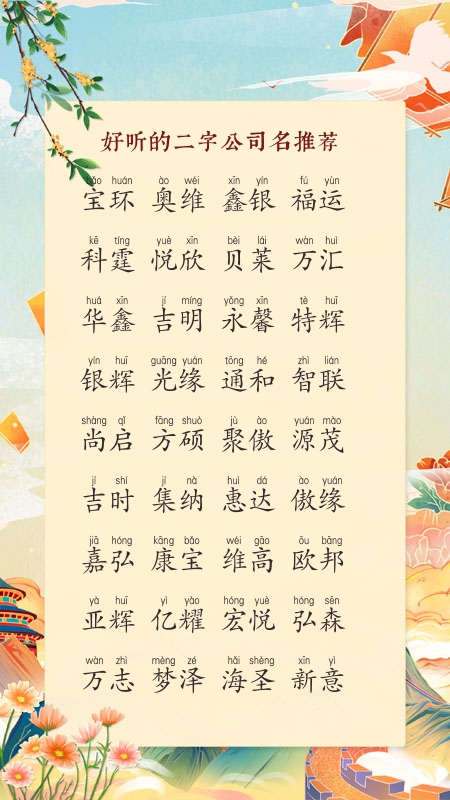 好听的二字公司名推荐
bǎo huán ào wéi xīn yín fú yùn
宝环 奥维 鑫银 福运
kē tíng yuè xīn bèi lái wàn huì
科霆 悦欣 贝莱 万汇
huá xīn jí míng yǒng xīn tè huī
华鑫 吉明 永馨 特辉
yín huī guāng yuán tōng hé zhì lián
银辉 光缘 通和 智联
shàng qǐ fāng shuò jù ào yuán mào
尚启 方硕 聚傲 源茂
jí shí jí nà huì dá ào yuán
吉时 集纳 惠达 傲缘
jiā hóng kāng bǎo wéi gāo ōu bāng
嘉弘 康宝 维高 欧邦
yà huī yì yào hóng yuè hóng sēn
亚辉 亿耀 宏悦 弘森
wàn zhì mèng zé hǎi shèng xīn yì
万志 梦泽 海圣 新意